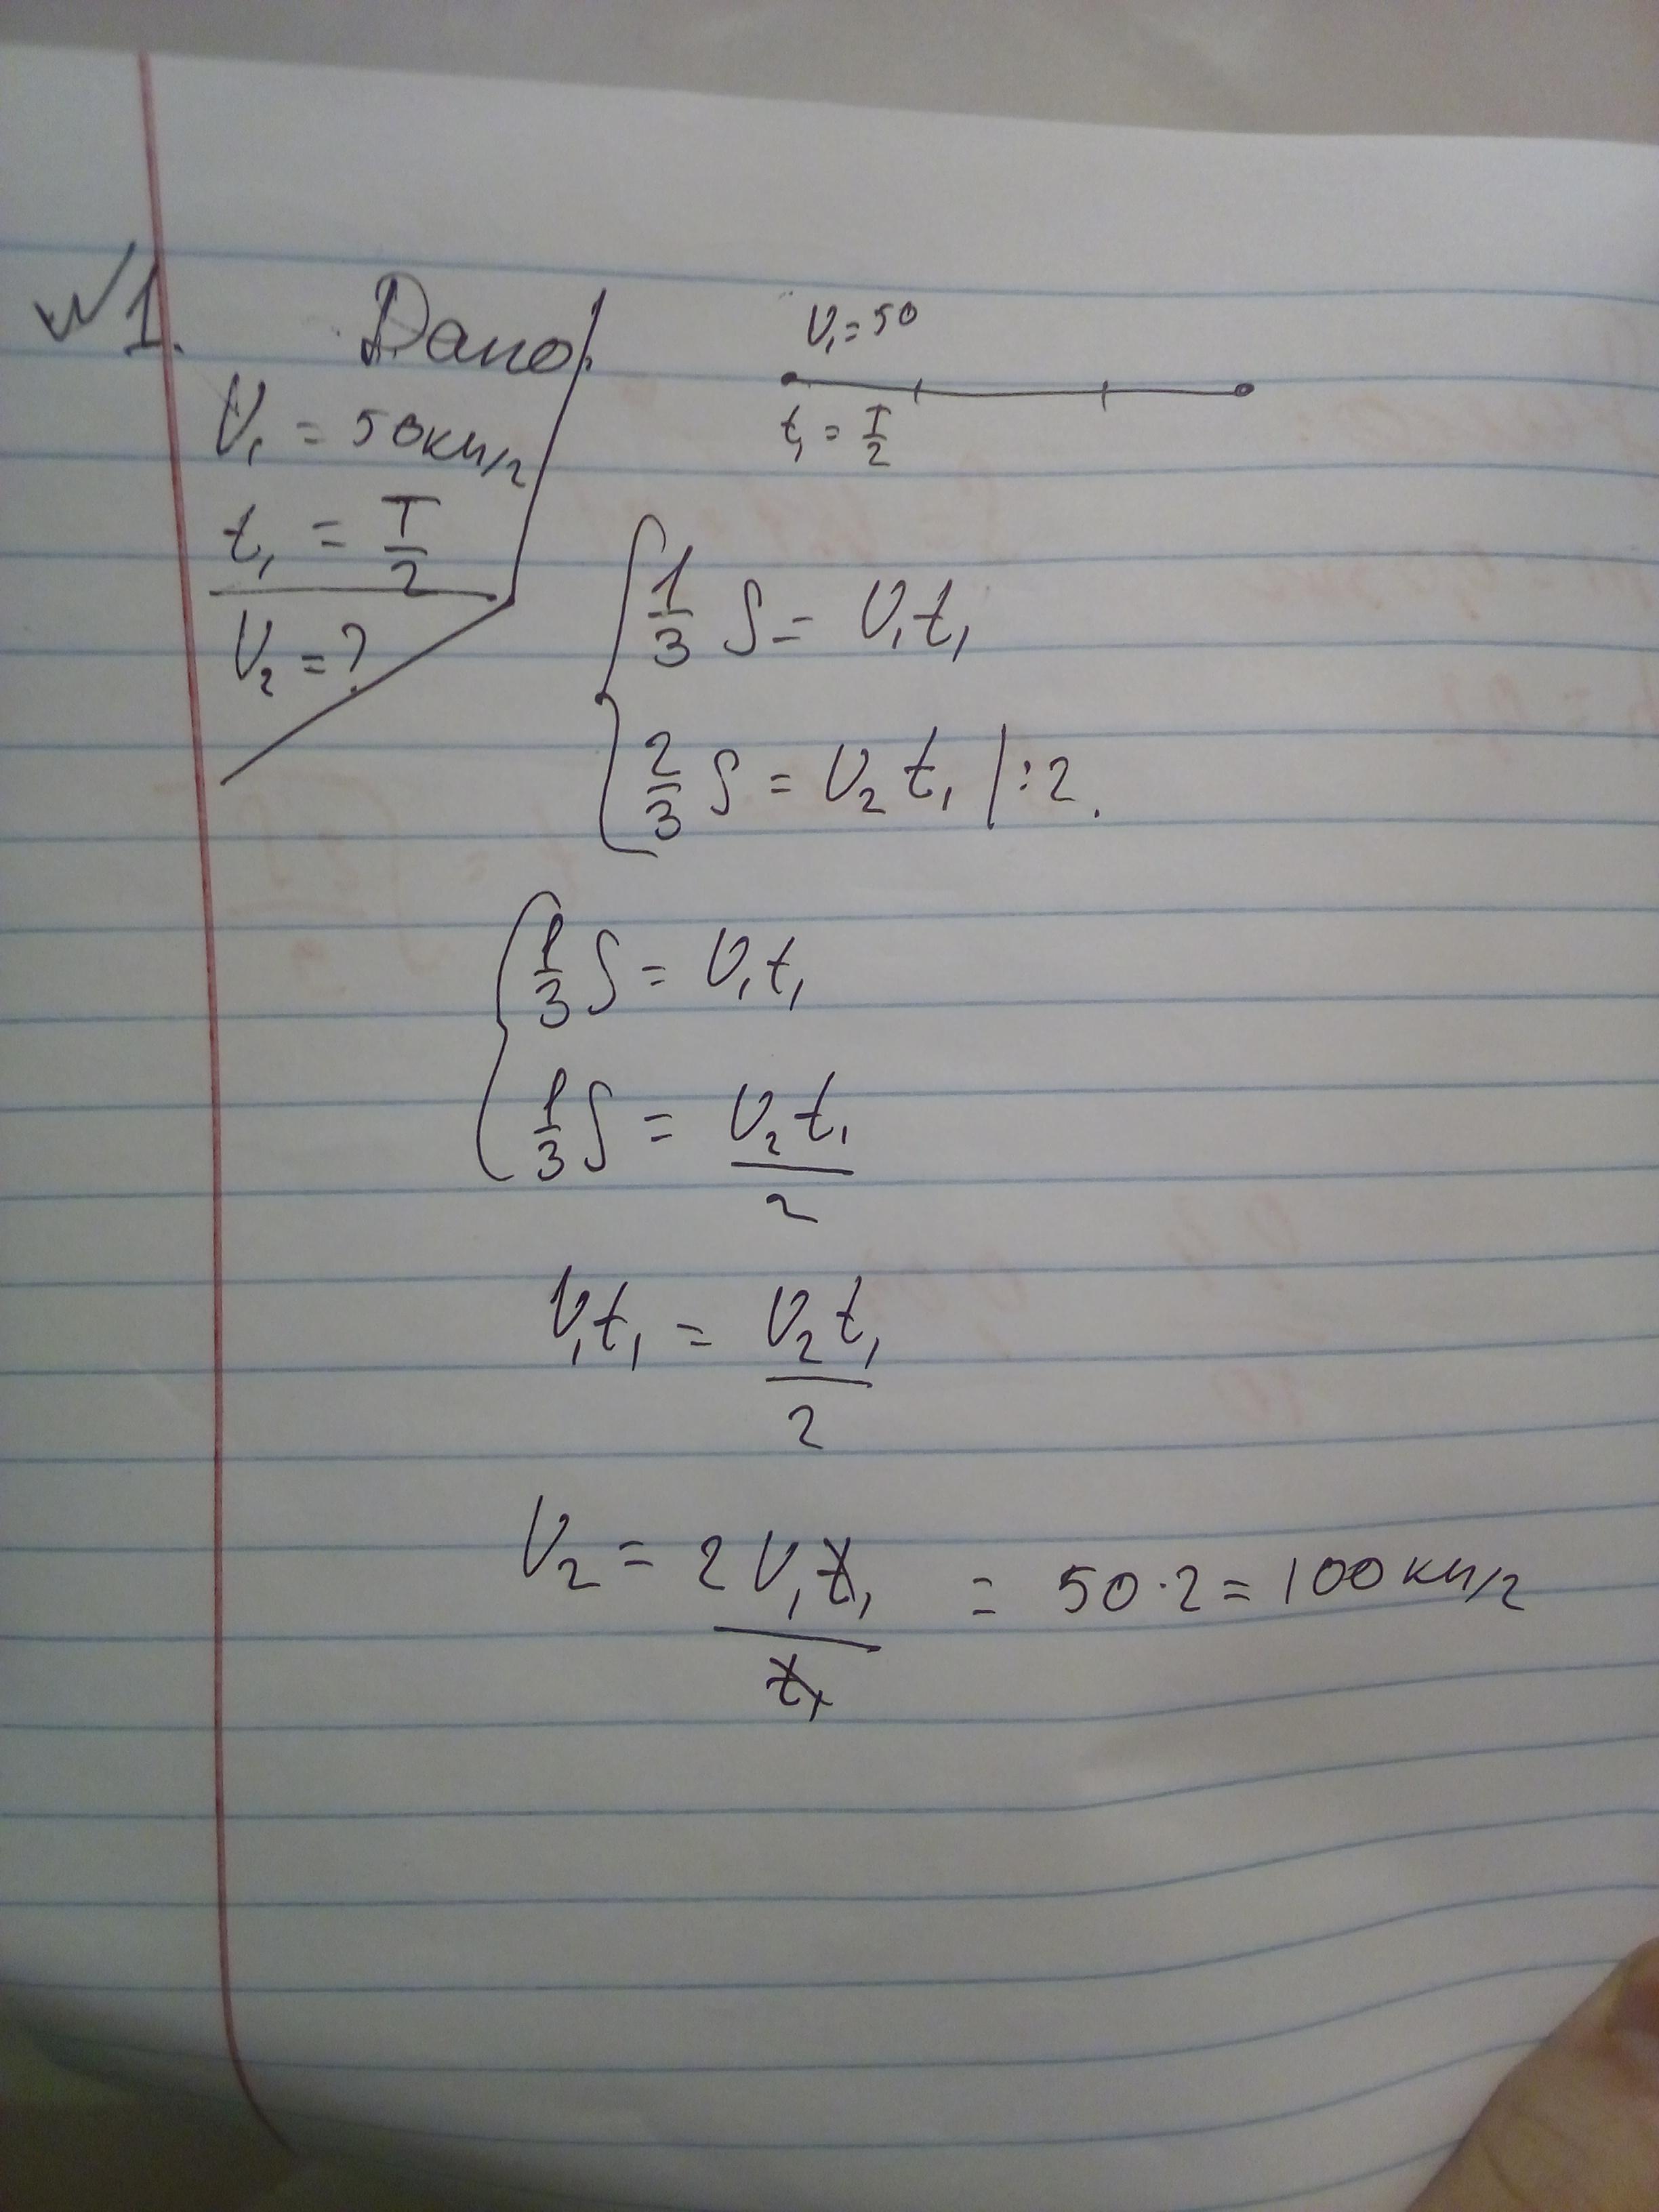 №1. Дано:
V₁ = 50км/г
t₁ = T/2
V₂ = ?
V₁ = 50
t₁ = T/2
1/3 S = V₁t₁
2/3 S = V₂t₁ |:2.
1/3 S = V₁t₁
1/3 S = V₂t₁/2
V₁t₁ = V₂t₁/2
V₂ = 2V₁t₁/t₁ = 50·2 = 100км/г